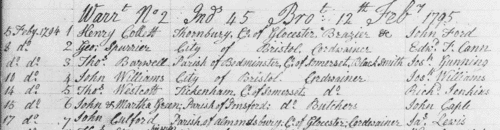 Warrt No 2 Ind 45 Brot 12th Feby 1795
5 Feby 1794 1 Henry Collett Thornbury, Co of Glocester Brazier &c John Ford
8 do 2 Geo: Spurrier City of Bristol Cordwainer Edwd T. Cann
do do 3 Thos Barwell Parish of Bedminster, Co of Somerset, Black Smith Jos: Gunning
10 do 4 John Williams City of Bristol Cordwainer Jos: Williams
14 do 5 Thos Westcott Tickenham, Co of Somerset do Richd Jenkins
16 do 6 John & Martha Green; Parish of Butchers John Caple
17 do 7 John Parish of Almondsbury, Co of Glocester; Cordwainer Jas: Lewis